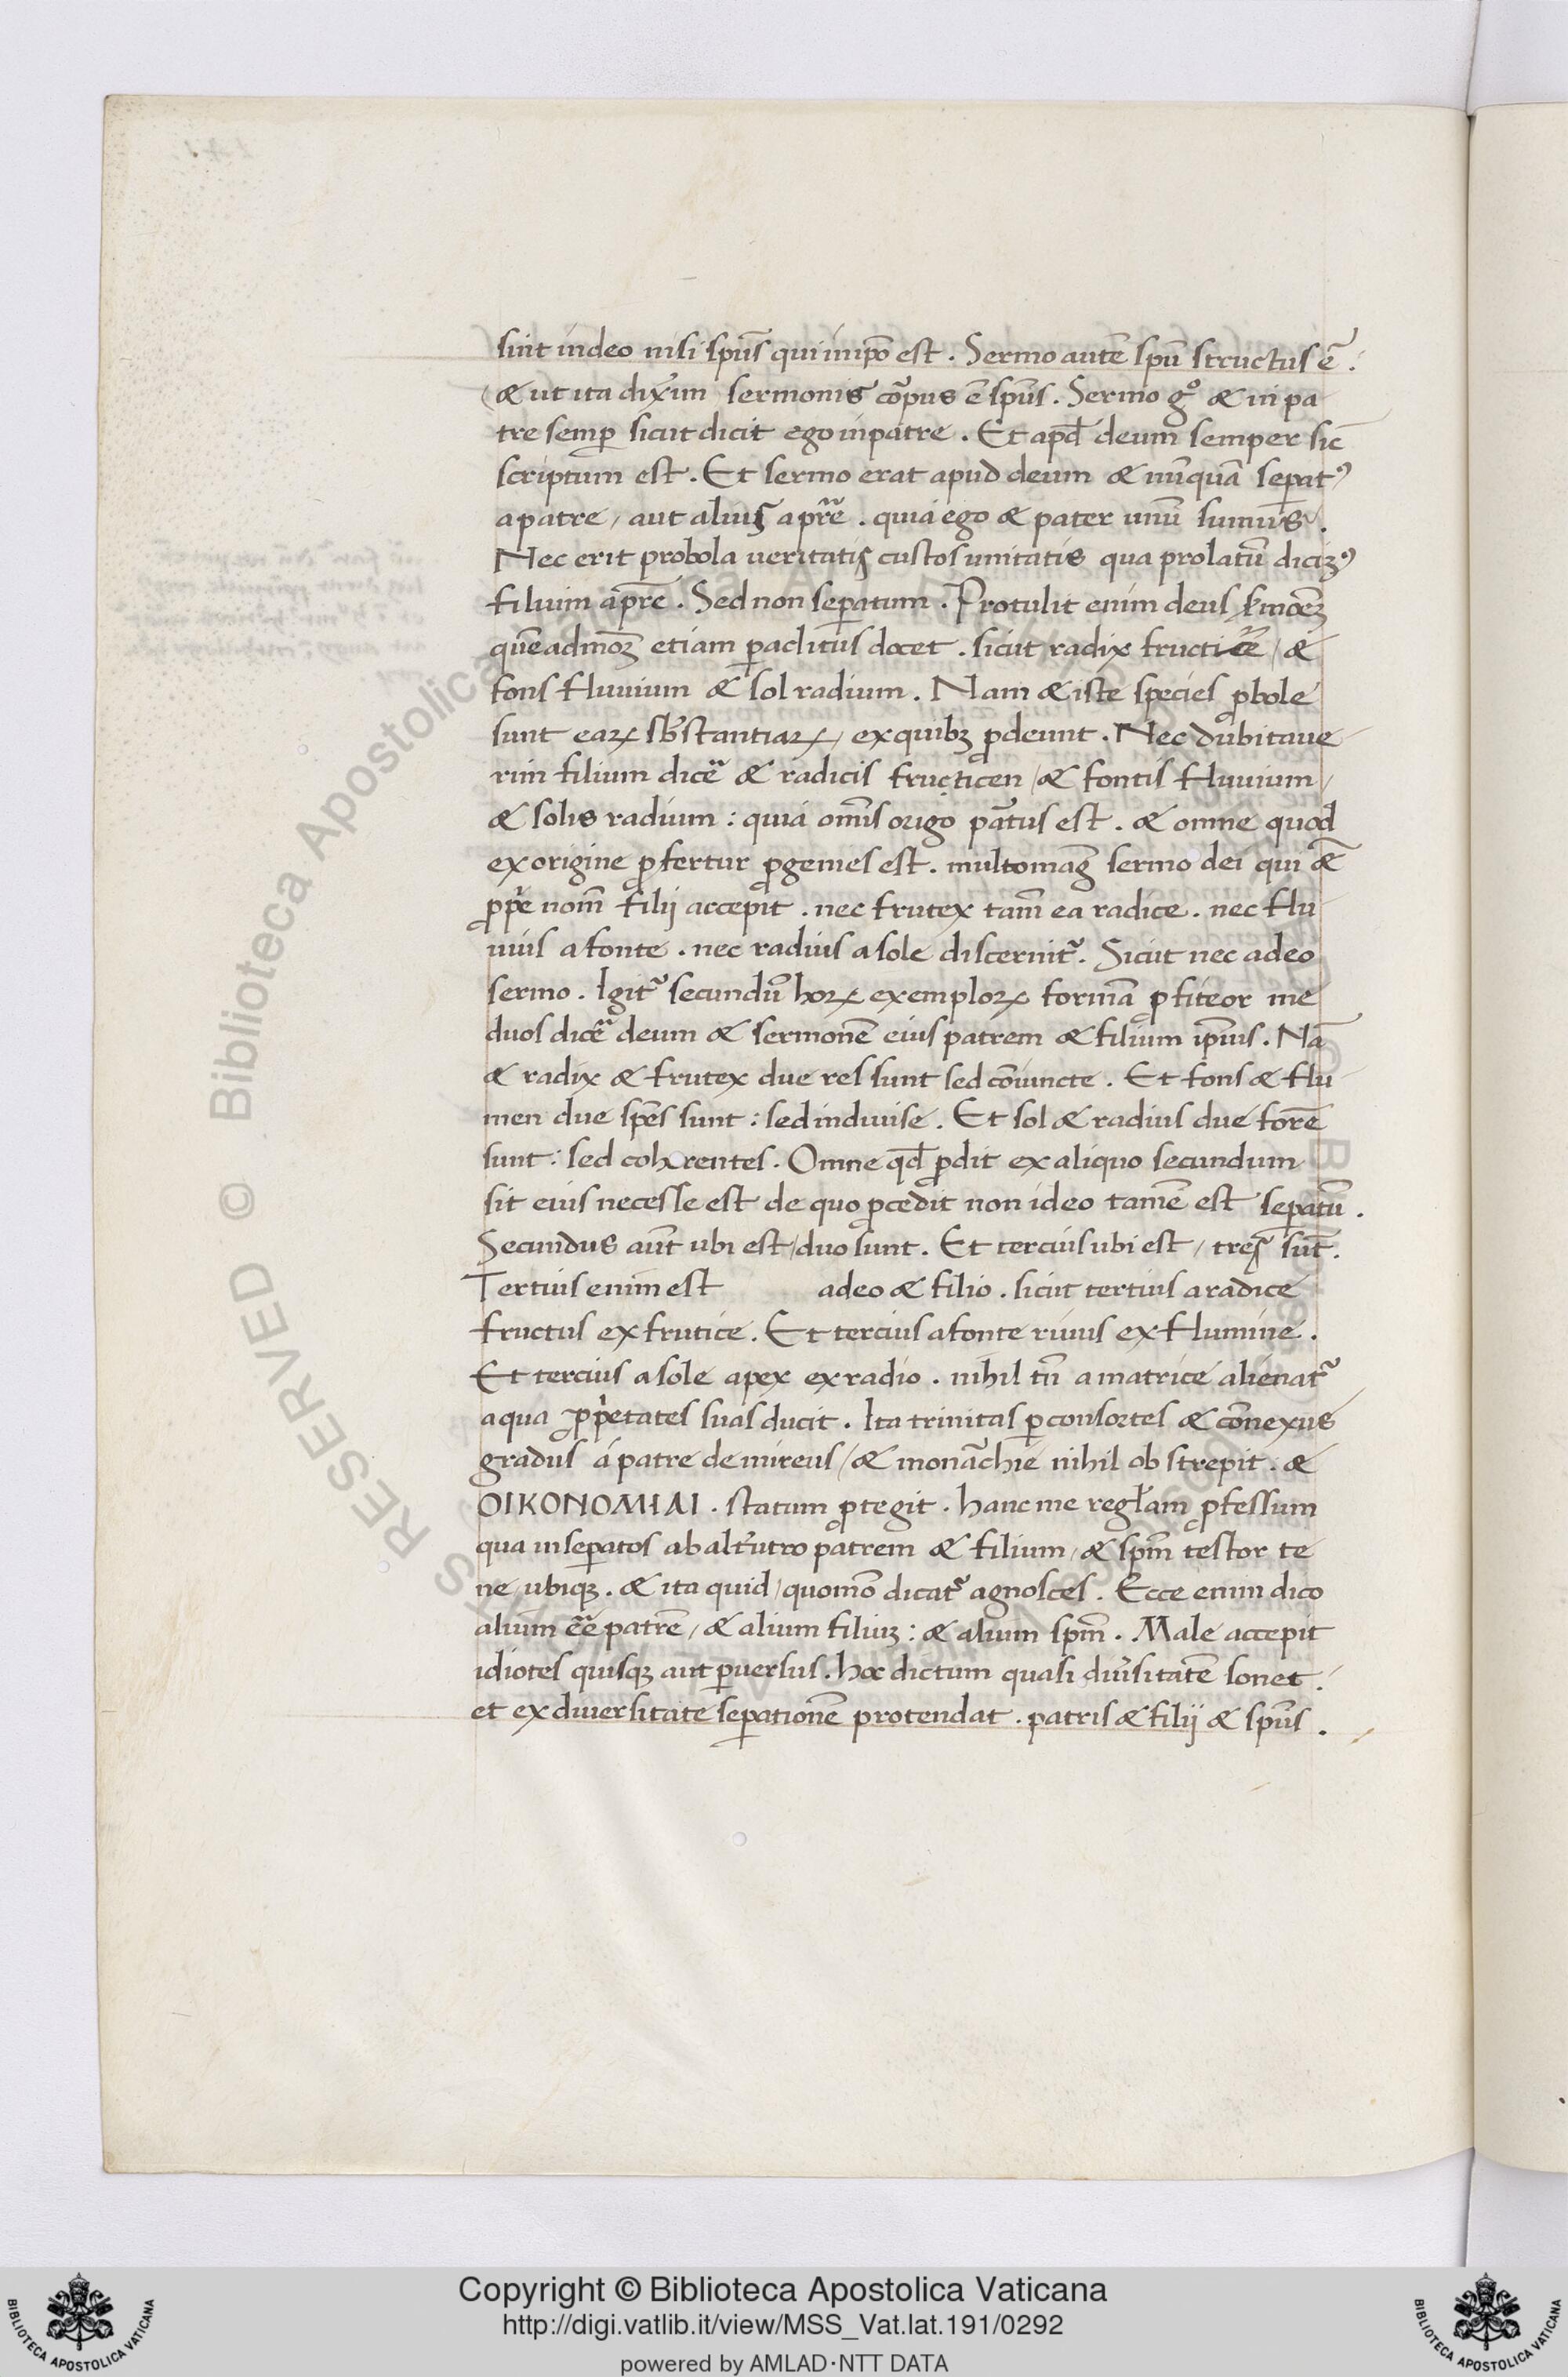 sint in deo nisi spūs qui in ipo est . Sermo autē spū structus ē .
& ut ita dixim sermonis corpus ē spūs . Sermo g° & in pa
tre semp sicut dicit ego in patre . Et apd deum semper sic
scriptum est . Et sermo erat apud deum & nūnquā sepatꝰ
a patre , aut alius a pr̃e . quia ego & pater unū sumus .
Nec erit probola veritatis custos unitatis qua prolatū diciꝫꝰ
filium a pr̃e . Sed non sepatum . Protulit enim deus
quēadmoꝫ etiam paclitus docet . sicut radix fructicē , &
fons fluuium & sol radium . Nam & iste species ꝓbole
sunt eaꝝ sb̃stantiaꝝ , ex quibꝫ ꝓdeunt . Nec dubitaue
rim filium dicẽ & radicis fructicen , & fontis fluuium ,
& solis radium : quia omīs origo pātus est . & omne quod
ex origine ꝓfertur ꝓgenies est . multo mag̃ sermo dei qui &̄
ꝓp̃e nom̄ filij accepit . nec frutex tam̄ ea radice . nec flu
uius a fonte . nec radius a sole discernit̃ . Sicut nec adeo
sermo . Igit̃ secundū hoꝝ exemploꝝ formā ꝓfiteor me
duos dicẽ deum & sermonē eius patrem & filium ipīus . Nā
& radix & frutex due res sunt sed cōiuncte . Et fons & flu
men due spēs sunt : sed indiuise . Et sol & radius due forē
sunt : sed coherentes . Omne qd̄ ꝓdit ex aliquo secundum
sit eius necesse est de quo ꝓcedit non ideo tamē est sepatū .
Secundus aūt ubi est , duo sunt . Et tercius ubi est , tres sūt .
Tertius enim est adeo & filio . sicut tertius a radice
fructus ex frutice . Et tercius a fonte riuus ex flumine .
Et tercius a sole apex ex radio . nihil tn̄ a matrice alienat̃
a qua ꝓp̃etates suas ducit . Ita trinitas ꝑ consortes & cōnexus
gradus á patre demireus , & monãchie nihil obstrepit . &
OIKONOMIAI . statum ꝓtegit . hanc me regłam ꝓfessum
qua insepatos ab alt̃utro patrem & filium , & spm̄ testor te
ne ubiqꝫ . & ita quid , quomō dicat̃ agnosces . Ecce enim dico
alium eẽ patrē , & alium filiuꝫ : & alium spm̄ . Male accepit
idiotes quisqꝫ aut ꝑuersus . hoc dictum quasi diũsitatē sonet .
et ex diuersitate sepationē protendat . patris & filij & spūs .
RESERVED © Biblioteca Apostolica
Copyright © Biblioteca Apostolica Vaticana
http://digi.vatlib.it/view/MSS_Vat.lat.191/0292
powered by AMLAD·NTT DATA
BIBLIOTECA APOSTOLICA VATICANA
BIBLIOTECA APOSTOLICA VATICANA